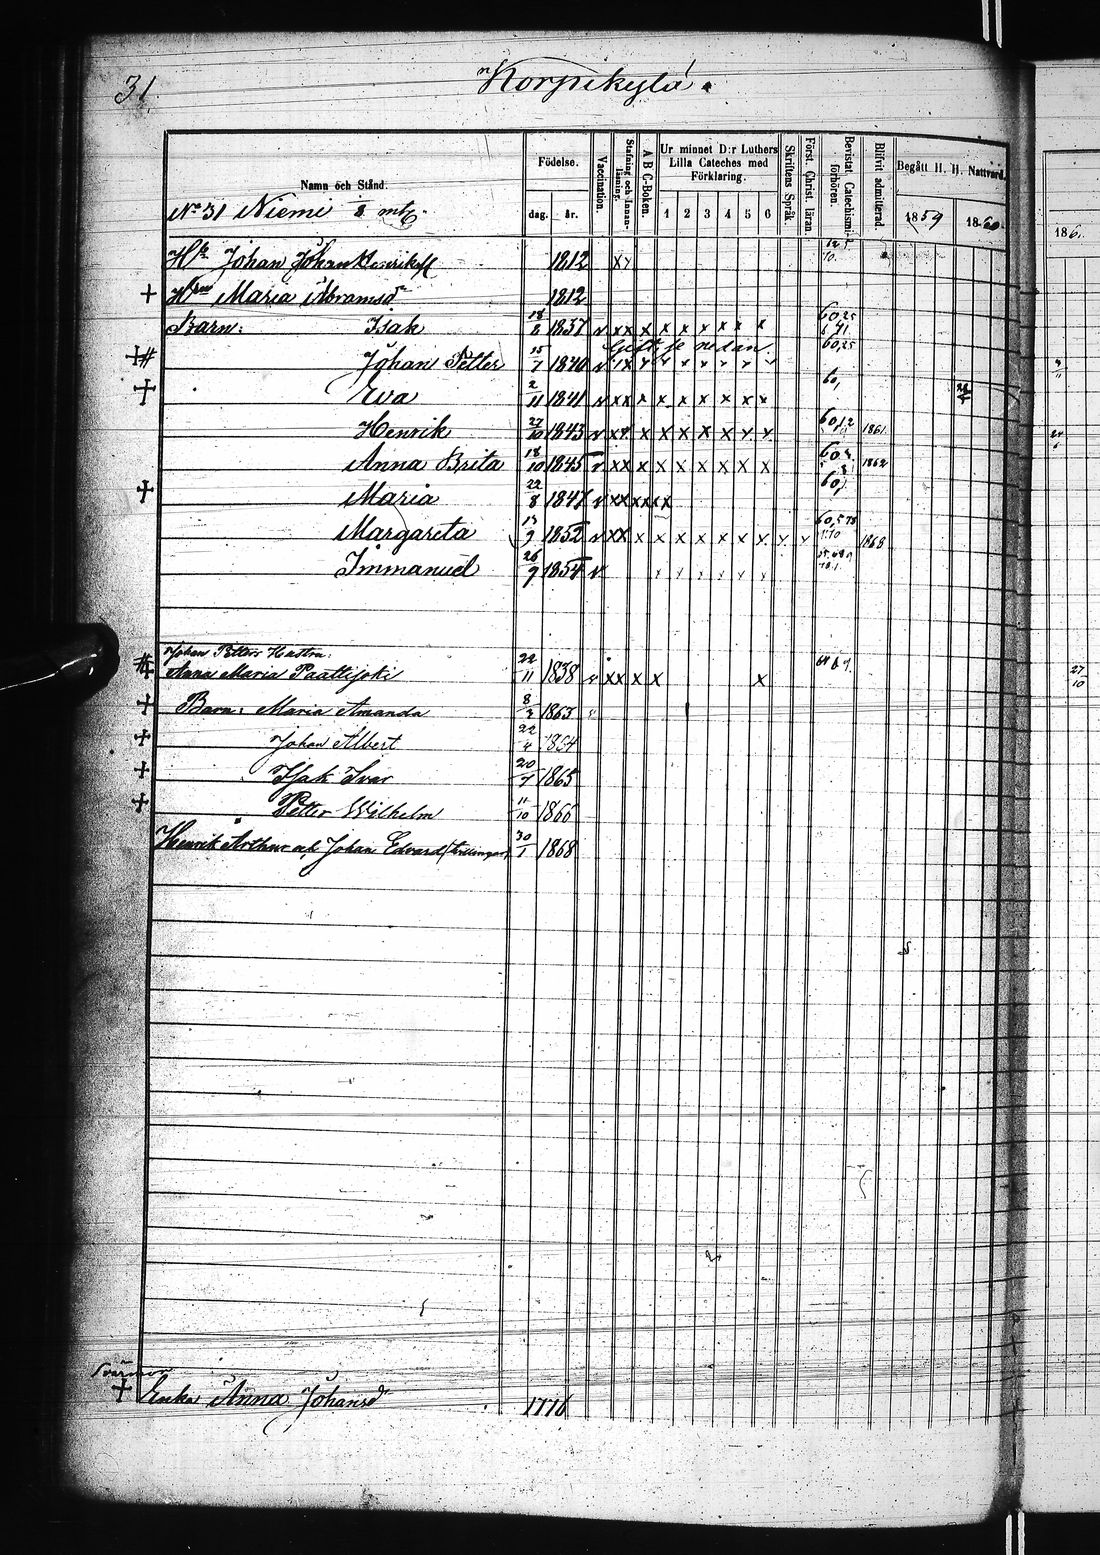 31.
Korpikylä.
Namn och Stånd.
Födelse.
dag. år.
Vaccination.
Stafning och Innanläsning.
A B C-Boken.
Ur minnet D:r Luthers Lilla Cateches med Förklaring.
1 2 3 4 5 6
Skriftens Språk.
Först. Christ. läran.
Bevistat Catechismi-förhören.
Blifvit admitterad.
Begått H. H. Nattvard.
1859 1860
186
No 31 Niemi mtl.
Johan Johan Henrikss 1812 x
+ Maria Abramsdr 1812
Barn: Isak 18/2 1837 v x x x x x x x x x 60,25
Gift, se nedan.
Johan Petter 15/7 1840 v x x x x x x x x 60,25
+ Eva 2/11 1841 v x x x x x x x x x 60,
Henrik 27/10 1843 v x x x x x x x x x 60,12 1861
Anna Brita 18/10 1845 v x x x x x x x x x 1862
+ Maria 22/8 1847 v x x x x x x 60,
Margareta 13/9 1852 v x x x x x x x x x x x 1868
Immanuel 26/9 1854 v
Johan Petters Hustru:
Anna Maria Paattijoki 22/11 1838 v x x x x x
+ Barn: Maria Amanda 8/2 1863
+ Johan Albert 22/4 1864
+ Isak Ivar 20/7 1865
+ Petter Wilhelm 11/10 1866
Henrik Arthur och Johan Edvard (tvillingar) 30/1 1868
27/10
Svärmor
+ Enka Anna Johansdr 1776